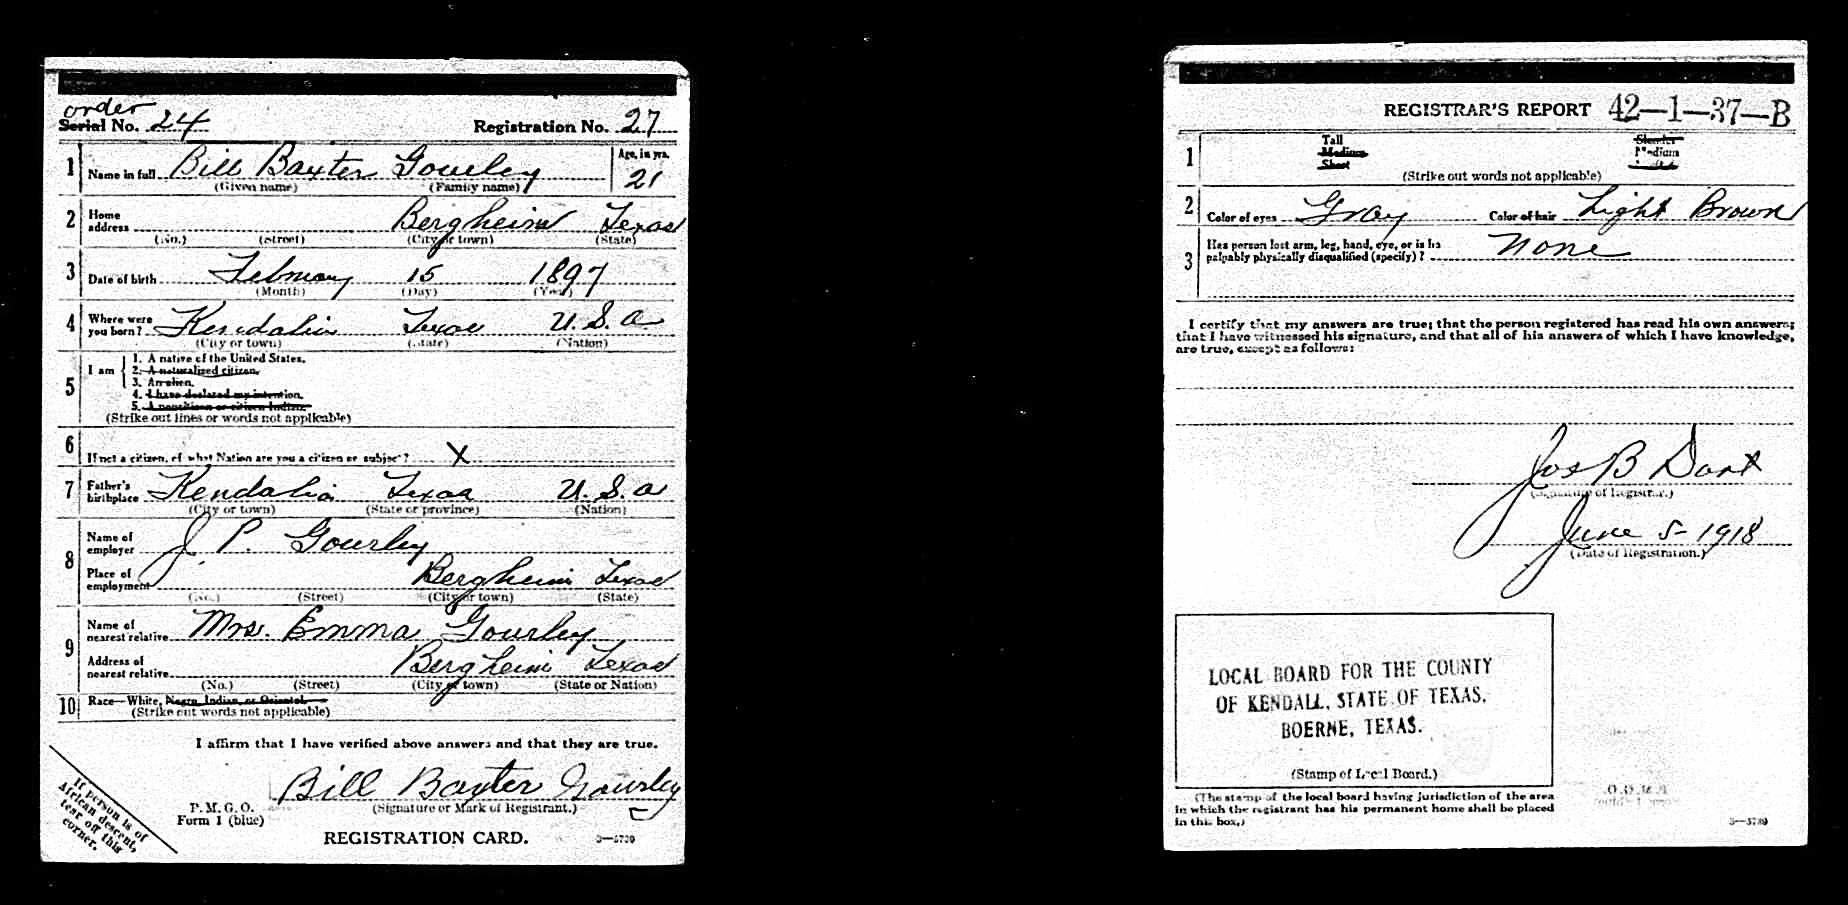 order
Serial No. 24 Registration No. 27
1 Name in full Bill Baxter Gourley Age, in yrs. 21
(Given name) (Family name)
2 Home address Bergheim Texas
(No.) (Street) (City or town) (State)
3 Date of birth February 15 1897
(Month) (Day) (Year)
4 Where were you born? Kendalia Texas U.S.A
(City or town) (State) (Nation)
5 I am
1. A native of the United States.
2. A naturalized citizen.
3. An alien.
4. I have declared my intention.
5. A noncitizen or citizen Indian.
(Strike out lines or words not applicable)
6 If not a citizen, of what Nation are you a citizen or subject? X
7 Father's birthplace Kendalia Texas U.S.A
(City or town) (State or province) (Nation)
8 Name of employer J. P. Gourley
Place of employment Bergheim Texas
(No.) (Street) (City or town) (State)
9 Name of nearest relative Mrs. Emma Gourley
Address of nearest relative Bergheim Texas
(No.) (Street) (City or town) (State or Nation)
10 Race—White, Negro, Indian, or Oriental
(Strike out words not applicable)
I affirm that I have verified above answers and that they are true.
Bill Baxter Gourley
P. M. G. O. (Signature or Mark of Registrant.)
Form 1 (blue)
REGISTRATION CARD. 3—5739
If person is of
African descent,
tear off this
corner.
REGISTRAR'S REPORT 42—1—37—B
1 Tall Slender
Medium Medium
Short
(Strike out words not applicable)
2 Color of eyes Gray Color of hair Light Brown
3 Has person lost arm, leg, hand, eye, or is he
palpably physically disqualified (specify)? None
I certify that my answers are true; that the person registered has read his own answers;
that I have witnessed his signature, and that all of his answers of which I have knowledge,
are true, except as follows:
Jos B Dart
(Signature of Registrar.)
June 5 - 1918
(Date of Registration.)
LOCAL BOARD FOR THE COUNTY
OF KENDALL, STATE OF TEXAS,
BOERNE, TEXAS.
(Stamp of Local Board.)
(The stamp of the local board having jurisdiction of the area
in which the registrant has his permanent home shall be placed
in this box.)
3—5739